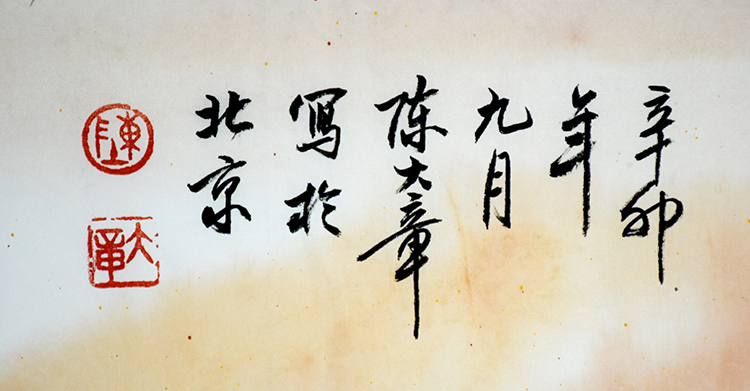 辛卯
年
九月
陈大章
寫於
北京
陳
大章